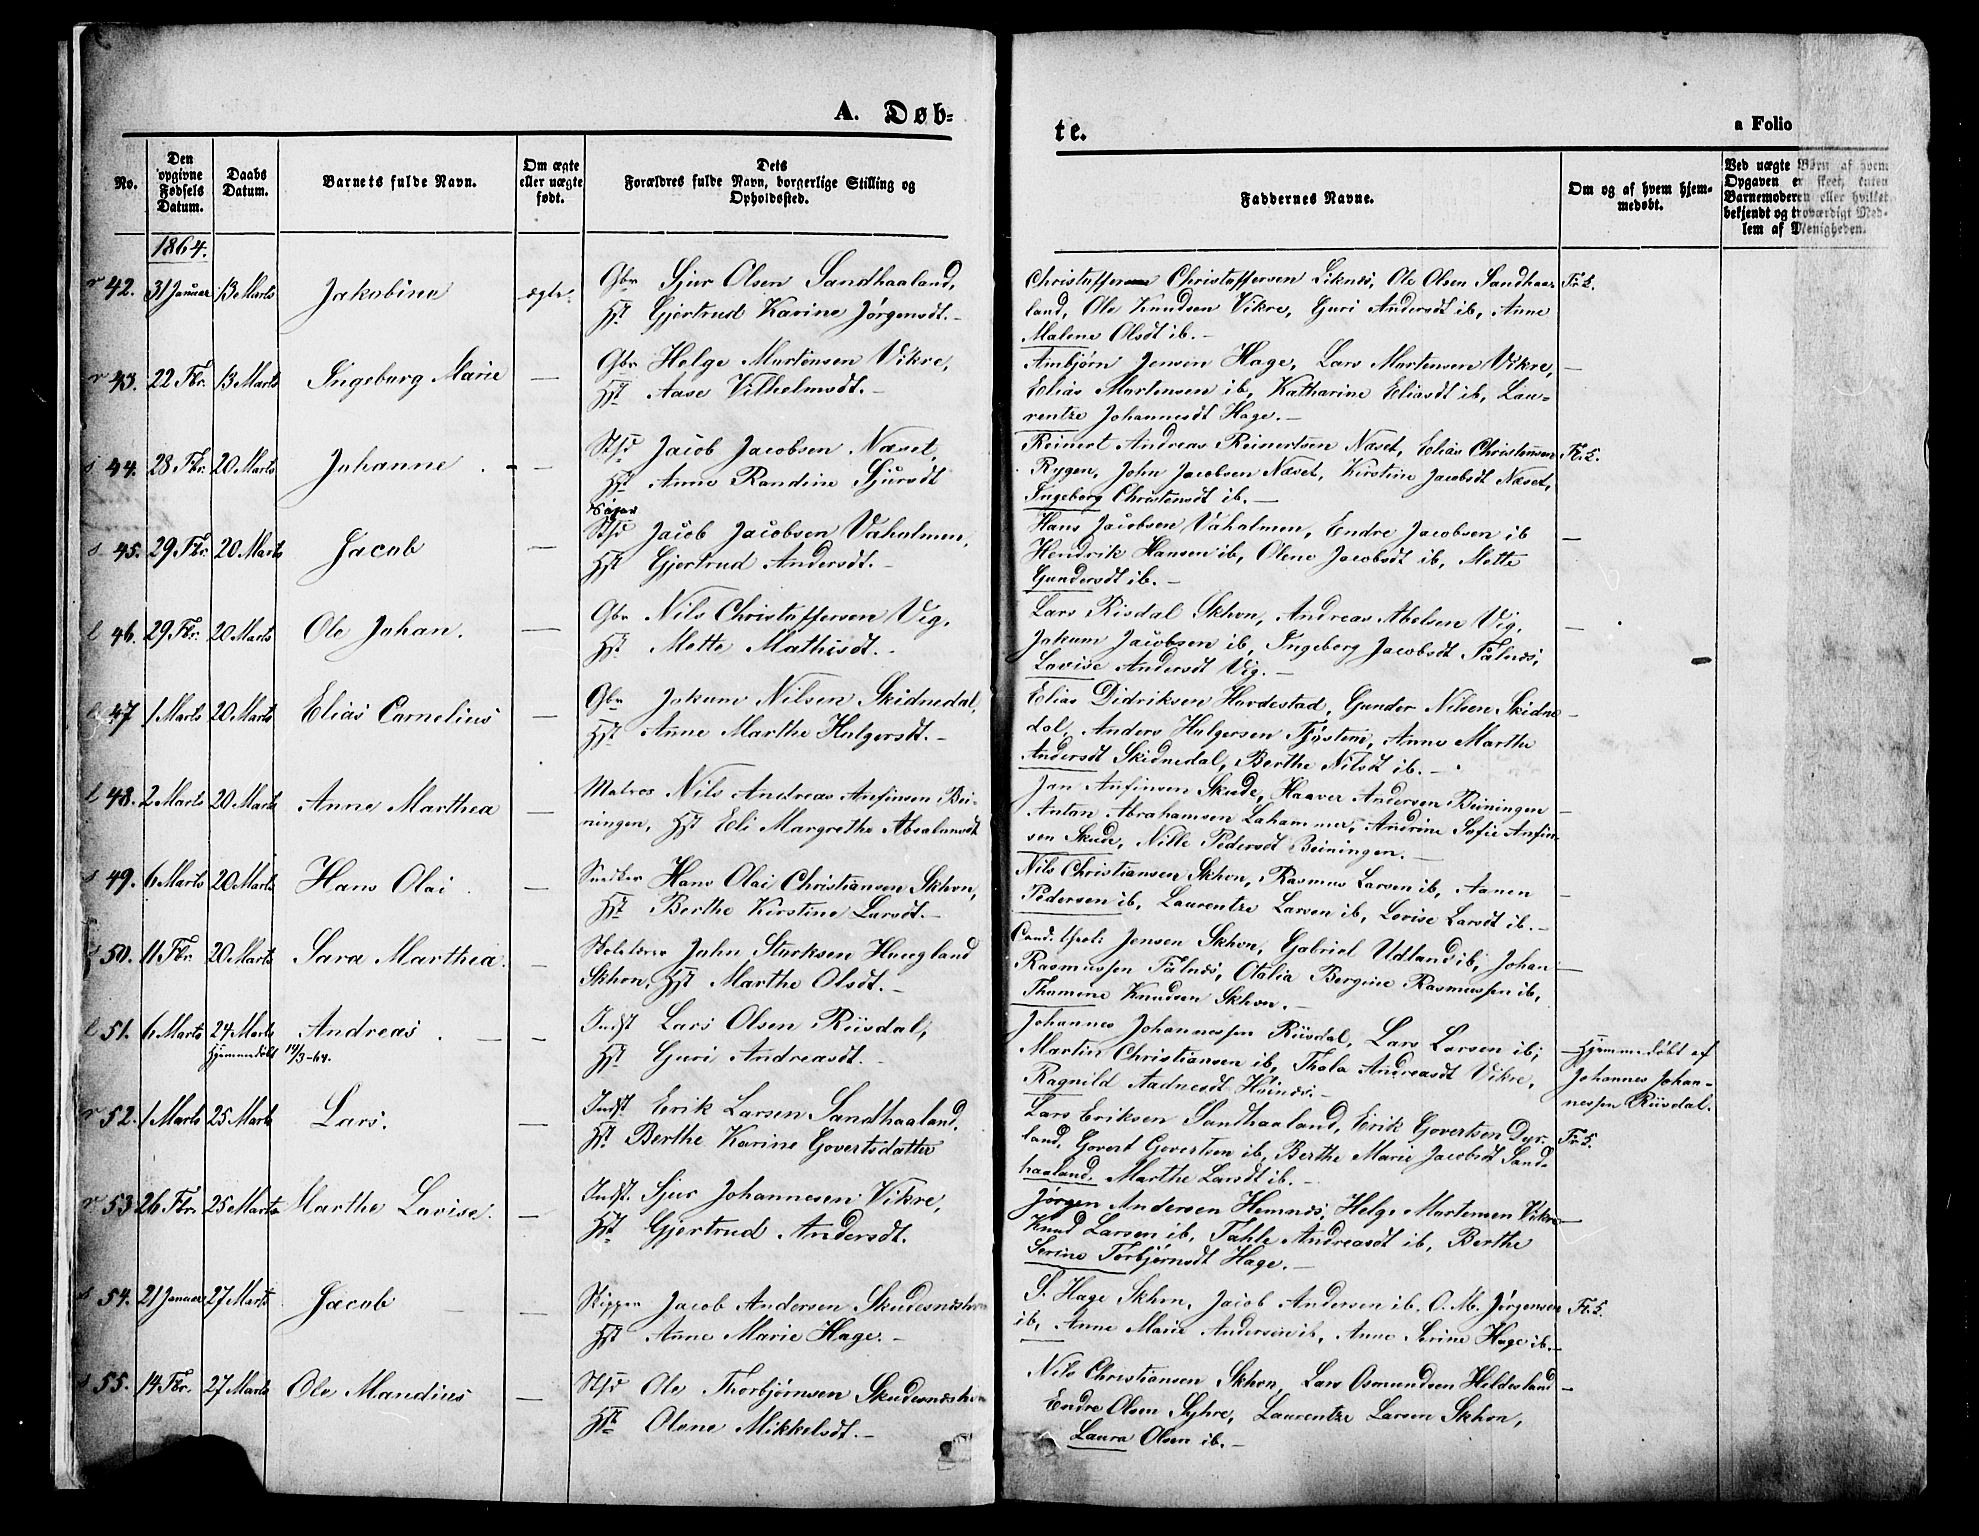 A. Døb-
te.
a Folio
No.
Den opgivne Fødsels Datum.
Daabs Datum.
Barnets fulde Navn.
Om ægte eller uægte født.
Dets Forældres fulde Navn, borgerlige Stilling og Opholdssted.
Faddernes Navne.
Om og af hvem hjem-medøbt.
Ved uægte Børn af hvem Opgaven er skeet, enten Barnemoderen eller hvilket bekjendt og troværdigt Med-lem af Menigheden.
1864.
r 42. 31 Januar 13 Marts Jakobine ægte.
Gbr Sjur Olsen Sandhaaland,
Hst Gjertrud Karine Jørgensdt.-
Christoffer Christoffersen Liknes, Ole Olsen Sandhaa-
land, Ole Knudsen Vikre, Guri Andersdt ib, Anne
Malene Olsdt ib.-
Fr. S.
r 43. 22 Fbr. 13 Marts Ingeborg Marie —
Gbr Helge Mortensen Vikre,
Hst Aase Vilhelmsdt.-
Ambjørn Jensen Hage, Lars Mortensen Vikre,
Elias Mortensen ib, Katharine Eliasdt ib, Lau-
rentze Johannesdt Hage.-
s 44. 28 Fbr. 20 Marts Johanne —
Stsd Jacob Jacobsen Næset,
Hst Anne Randine Sjursdt
Reinert Andreas Reinertsen Næset, Elias Christensen
Rygen, John Jacobsen Næset, Kirstine Jacobsdt Næset,
Ingeborg Christensdt ib.-
Fr. S.
s 45. 29 Fbr. 20 Marts Jacob —
Stsd Jacob Jacobsen Vaholmen,
Hst Gjertrud Andersdt.-
Hans Jacobsen Vaholmen, Endre Jacobsen ib
Hendrik Hansen ib, Olene Jacobsdt ib, Mette
Gundersdt ib.-
l 46. 29 Fbr. 20 Marts Ole Johan. —
Gbr Nils Christoffersen Vig,
Hst Mette Mathisdt.-
Lars Risdal Skhvn, Andreas Abelsen Vig,
Jokum Jacobsen ib, Ingeborg Jacobsdt Falnes,
Lovise Andersdt Vig.-
l 47 1 Marts 20 Marts Elias Cornelius —
Gbr Jokum Nilsen Skidnedal,
Hst Anne Marthe Holgersdt.-
Elias Didriksen Hovdestad, Gunder Nilsen Skidne
dal, Anders Holgersen Tjøstem, Anne Marthe
Andersdt Skidnedal, Berthe Nilsdt ib.-
l 48. 2 Marts 20 Marts Anne Marthea —
Matros Nils Andreas Anfinsen Bei-
ningen, Hst Eli Margrethe Absalonsdt
Jan Anfinsen Skude, Haaver Andersen Beiningen
Anton Abrahamsen Lahammer, Andrine Sofie Anfin-
sen Skude, Nille Pedersdt Beiningen.-
s 49. 6 Marts 20 Marts Hans Olai —
Snedker Hans Olai Christiansen Skhvn,
Hst Berthe Kirstine Larsdt.-
Nils Christiansen Skhvn, Rasmus Larsen ib, Aanen
Pedersen ib, Laurentze Larsen ib, Lovise Larsdt ib.-
s 50. 11 Fbr. 20 Marts Sara Marthea. —
Skolelærer John Størksen Haugland
Skhvn, Hst Marthe Olsdt.-
Cand. theol: Jensen Skhvn, Gabriel Udland ib, Johan
Rasmussen Falnes, Otalia Bergine Rasmussen ib,
Thomine Knudsen Skhvn.-
l 51. 6 Marts 24 Marts Andreas. —
Hjemmedøbt 14/3-64.
Indst Lars Olsen Riisdal,
Hst Guri Andreasdt.-
Johannes Johannessen Riisdal, Lars Larsen ib,
Martin Christiansen ib, Thala Andreasdt Vikre,
Ragnild Aadnesdt Høines.-
Hjemmedøbt af
Johannes Johan-
nessen Riisdal.
r 52. 1 Marts 25 Marts Lars. —
Indst. Eerik Larsen Sandhaaland,
Hst. Berthe Karine Govertsdatter
Lars Eriksen Sandhaaland, Eirik Govertsen Dyr-
land, Govert Govertsen ib, Berthe Marie Jacobsdt Sand-
haaland, Marthe Larsdt ib.-
Fr. S.
r 53 26 Fbr. 25 Marts Marthe Lovise. —
Indst. Sjur Johannesen Vikre,
Hst Gjertrud Andersdt.
Jørgen Andersen Hemnes, Helge Mortensen Vikre
Knud Larsen ib, Tahle Andreasdt ib, Berthe
Serine Torbjørnsdt Hage.-
s 54. 21 Januar 27 Marts Jacob —
Skipper Jacob Andersen Skudesneshvn
Hst Anne Marie Hage.-
S. Hage Skhvn, Jacob Andersen ib. O. M. Jørgensen
ib, Anne Marie Andersen ib, Anne Serine Hage ib.-
Fr. S.
s 55. 14 Fbr. 27 Marts Ole Mandius —
Stsd Ole Thorbjørnsen Skudesneshvn
Hst Olene Mikkelsdt.-
Nils Christiansen Skhvn, Lars Osmundsen Hildesland
Endre Olsen Syhre, Laurentze Larsen Skhvn,
Laura Olsen ib.-